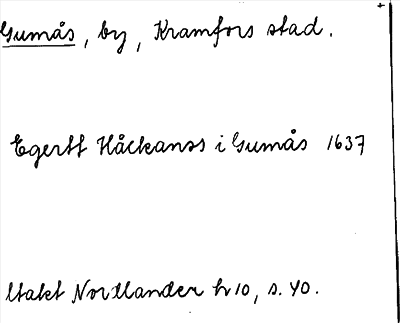 Gumås, by, Kramfors stad.
Egertt Håckanss i Gumås 1637
Utakt Nordlander hr 10, s. 40.